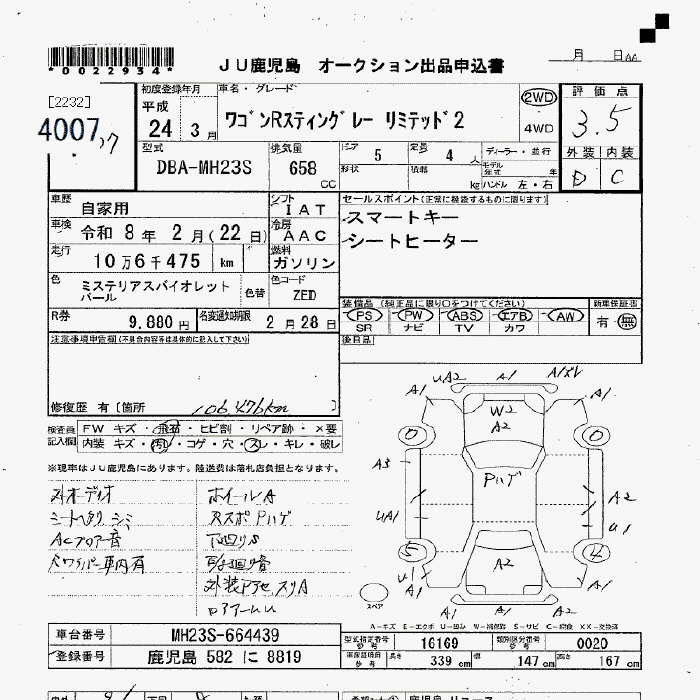 *0022934*
JU鹿児島 オークション出品申込書
月 日
[2232]
4007
初度登録年月
平成
24 3 月
車名・グレード
ワゴンRスティングレー リミテッド2
2WD
4WD
評価点
3.5
外装 内装
D C
型式
DBA-MH23S
排気量
658
CC
ドア
5
定員
4 人
形状
積載
kg
ディーラー・並行
モデル年式 年
ハンドル 左・右
車歴
自家用
シフト
IAT
車検
令和 8 年 2 月 (22 日)
冷房
AAC
走行
10万6千475 km
燃料
ガソリン
色
ミステリアスバイオレット
パール
色替
色コード
ZED
R券
9,880 円
名変通知期限
2 月 28 日
セールスポイント(正常に機能するものに限ります)
スマートキー
シートヒーター
装備品 (純正品に限り○をつけてください)
PS PW ABS エアB AW
SR ナビ TV カワ
新車保証書
有・無
後日品
注意事項申告欄(不具合内容等は具体的に記入して下さい)
修復歴 有 [箇所 ]
106,476km
検査員記入欄
FW キズ・飛石・ヒビ割・リペア跡・×要
内装 キズ・汚れ・コゲ・穴・スレ・キレ・破レ
※現車はJU鹿児島にあります。陸送費は落札店負担となります。
外オーディオ
シートヘタリ シミ
ACブロアー音
ホイールA
RスポPハゲ
下回りS
ロアアームU
A1 UA2 A1 A1 A1
W2
A2
Pハゲ
A3
UA1
A2
U1
A2
U1
A1 A1 A1 A1
スペア
A-キズ E-エクボ U-凹み W-補修跡 S-サビ C-腐食 XX-交換済
車台番号
MH23S-664439
登録番号
鹿児島 582 に 8819
型式指定番号
参考
16169
類別区分番号
参考
0020
車庫証明用
参考
長さ 339 cm
幅 147 cm
高さ 167 cm